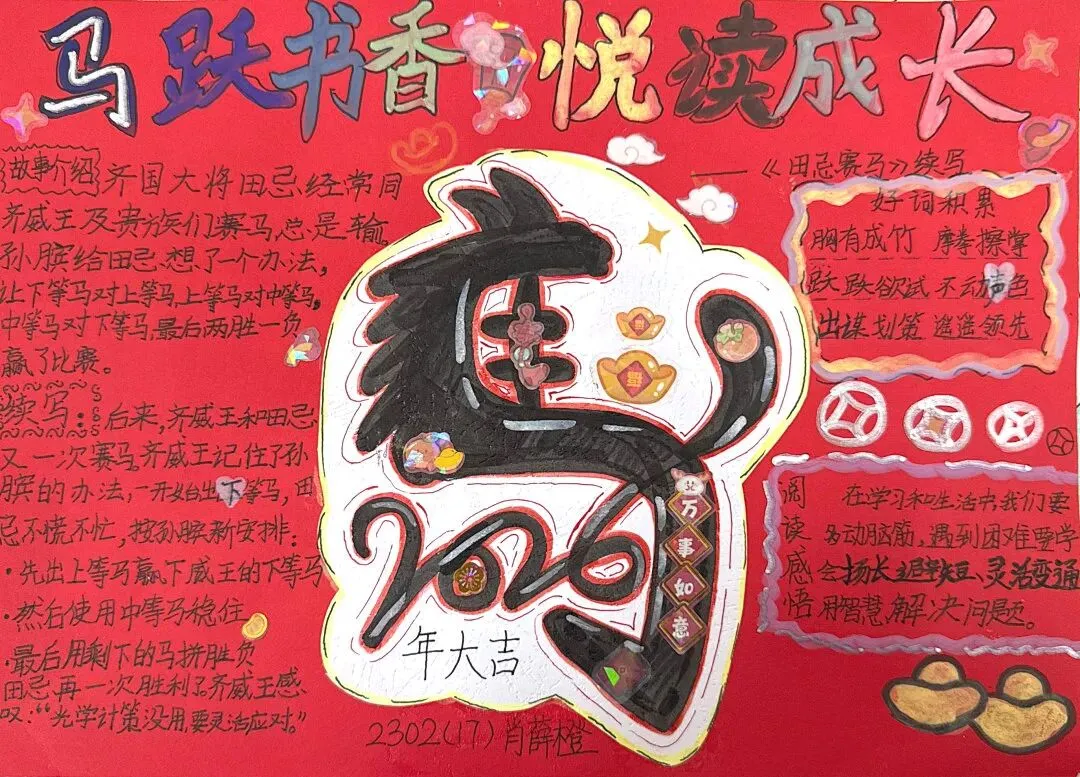 马跃书香 悦读成长
——《田忌赛马》续写
故事介绍 齐国大将田忌经常同
齐威王及贵族们赛马,总是输。
孙膑给田忌想了一个办法,
让下等马对上等马,上等马对中等马,
中等马对下等马,最后两胜一负
赢了比赛。
续写:后来,齐威王和田忌
又一次赛马。齐威王记住了孙
膑的办法,一开始出下等马,田
忌不慌不忙,按孙膑新安排:
·先出上等马赢下威王的下等马
·然后使用中等马稳住
·最后用剩下的马拼胜负
田忌再一次胜利了。齐威王感
叹:“光学计策没用,要灵活应对。”
好词积累
胸有成竹 摩拳擦掌
跃跃欲试 不动声色
出谋划策 遥遥领先
阅读感悟
在学习和生活中,我们要
多动脑筋,遇到困难要学
会扬长避短、灵活变通
用智慧解决问题。
万事如意
2026
年大吉
2302(17)肖薛橙